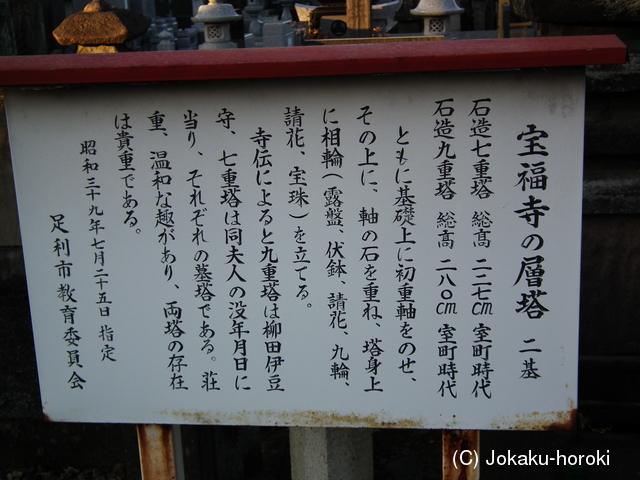 宝福寺の層塔 二基
石造七重塔 総高 二二七cm 室町時代
石造九重塔 総高 二八〇cm 室町時代
ともに基礎上に初重軸をのせ、
その上に、軸の石を重ね、塔身上
に相輪(露盤、伏鉢、請花、九輪、
請花、宝珠)を立てる。
寺伝によると九重塔は柳田伊豆
守、七重塔は同夫人の没年月日に
当り、それぞれの墓塔である。荘
重、温和な趣があり、両塔の存在
は貴重である。
昭和三十九年七月二十五日 指定
足利市教育委員会
(C) Jokaku-horoki